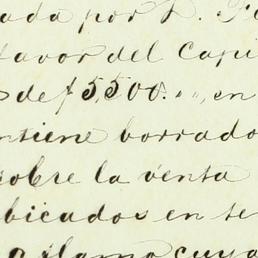 ada por D.
favor del Capi
s de $5,500. „ „, en
ntiene borrado
sobre la venta
bicados en te
llama cuya